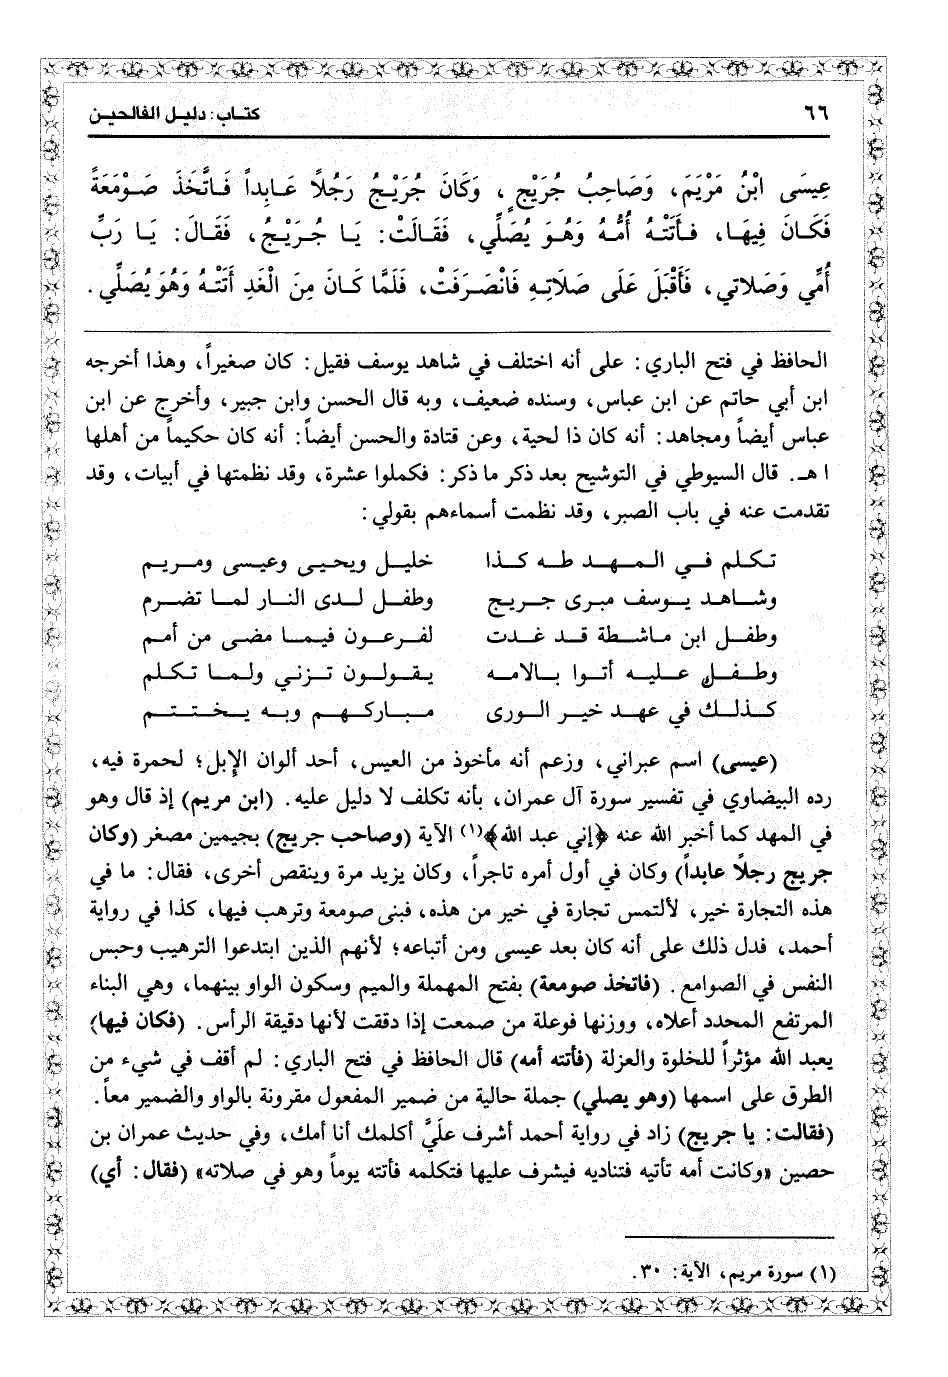 ٦٦
كتاب: دليل الفالحين
عِيسَى ابْنُ مَرْيَمَ، وَصَاحِبُ جُرَيْجٍ، وَكَانَ جُرَيْجُ رَجُلاً عَابِداً فَاتَّخَذَ صَوْمَعَةً
فَكَانَ فِيهَا، فَأَتَتْهُ أُمُّهُ وَهُوَ يُصَلِّي، فَقَالَتْ: يَا جُرَيْجُ، فَقَالَ: يَا رَبِّ
أُمِّي وَصَلاتي، فَأَقْبَلَ عَلَى صَلاتِهِ فَانْصَرَفَتْ، فَلَمَّا كَانَ مِنَ الْغَدِ أَتَتْهُ وَهُوَ يُصَلِّي.
الحافظ في فتح الباري: على أنه اختلف في شاهد يوسف فقيل: كان صغيراً، وهذا أخرجه
ابن أبي حاتم عن ابن عباس، وسنده ضعيف، وبه قال الحسن وابن جبير، وأخرج عن ابن
عباس أيضاً ومجاهد: أنه كان ذا لحية، وعن قتادة والحسن أيضاً: أنه كان حكيماً من أهلها
ا هـ. قال السيوطي في التوشيح بعد ذكر ما ذكر: فكملوا عشرة، وقد نظمتها في أبيات، وقد
تقدمت عنه في باب الصبر، وقد نظمت أسماءهم بقولي:
تكلم في المهد طه كذا خليل ويحيى وعيسى ومريم
وشاهد يوسف مبرى جريج وطفل لدى النار لما تضرم
وطفل ابن ماشطة قد غدت لفرعون فيما مضى من أمم
وطفل عليه أتوا بالامه يقولون تزني ولما تكلم
كذلك في عهد خير الورى مباركهم وبه يختتم
(عيسى) اسم عبراني، وزعم أنه مأخوذ من العيس، أحد ألوان الإبل؛ لحمرة فيه،
رده البيضاوي في تفسير سورة آل عمران، بأنه تكلف لا دليل عليه. (ابن مريم) إذ قال وهو
في المهد كما أخبر الله عنه ﴿إني عبد الله﴾(١) الآية (وصاحب جريج) بجيمين مصغر (وكان
جريج رجلاً عابداً) وكان في أول أمره تاجراً، وكان يزيد مرة وينقص أخرى، فقال: ما في
هذه التجارة خير، لألتمس تجارة في خير من هذه، فبنى صومعة وترهب فيها، كذا في رواية
أحمد، فدل ذلك على أنه كان بعد عيسى ومن أتباعه؛ لأنهم الذين ابتدعوا الترهيب وحبس
النفس في الصوامع. (فاتخذ صومعة) بفتح المهملة والميم وسكون الواو بينهما، وهي البناء
المرتفع المحدد أعلاه، ووزنها فوعلة من صمعت إذا دققت لأنها دقيقة الرأس. (فكان فيها)
يعبد الله مؤثراً للخلوة والعزلة (فأتته أمه) قال الحافظ في فتح الباري: لم أقف في شيء من
الطرق على اسمها (وهو يصلي) جملة حالية من ضمير المفعول مقرونة بالواو والضمير معاً.
(فقالت: يا جريج) زاد في رواية أحمد أشرف عليَّ أكلمك أنا أمك، وفي حديث عمران بن
حصين «وكانت أمه تأتيه فتناديه فيشرف عليها فتكلمه فأتته يوماً وهو في صلاته» (فقال: أي)
(١) سورة مريم، الآية: ٣٠.